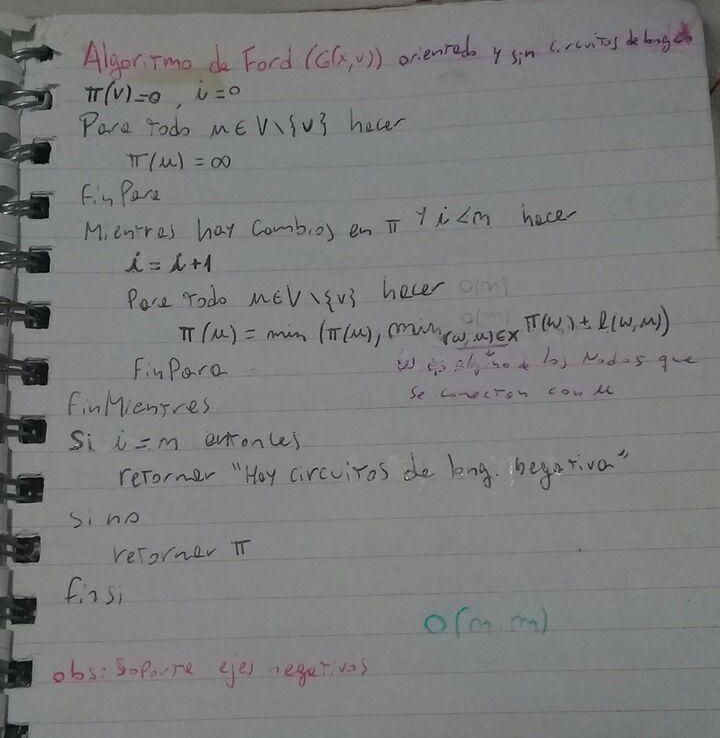 Algoritmo de Ford (G(X,V)) orientado y sin circuitos de long
π(v)=0, i=0
Para todo u ∈ V\{v} hacer
π(u) = ∞
finPara
Mientras hay cambios en π y i<n hacer
i = i+1
Para todo u ∈ V\{v} hacer O(n)
O(m)
π(u) = min (π(u), min(w,u)∈X π(w) + l(w,u))
finPara w es alguno de los nodos que
se conectan con u
finMientras
Si i=n entonces
retornar "Hay circuitos de long. negativa"
sino
retornar π
finsi
O(n.m)
obs: Soporta ejes negativos